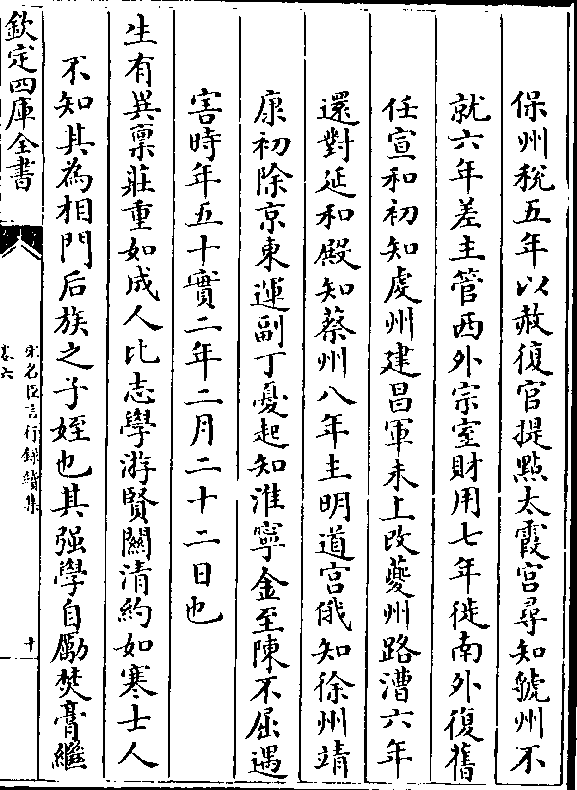 保州税五年以赦復官提㸃太霞宫尋知虢州不
就六年差主管西外宗室財用七年徙南外復舊
任宣和初知處州建昌軍未上改夔州路漕六年
還對延和殿知蔡州八年主明道宫俄知徐州靖
康初除京東運副丁憂起知淮寧金至陳不屈遇
害時年五十實二年二月二十二日也
生有異禀莊重如成人比志學游賢關清約如寒士人
不知其為相門后族之子姪也其强學自勵焚膏繼
欽定四庫全書
宋名臣言行録續集
卷六
十